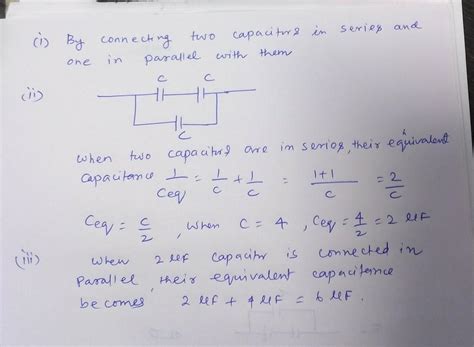 (i) By connecting two capacitors in series and
one in parallel with them
(ii)
C C
C
When two capacitors are in series, their equivalent
capacitance 1/Ceq = 1/C + 1/C = 1+1/C = 2/C
Ceq = C/2, when C = 4, Ceq = 4/2 = 2 μF
(iii) When 2 μF capacitor is connected in
parallel, their equivalent capacitance
becomes 2 μF + 4 μF = 6 μF.